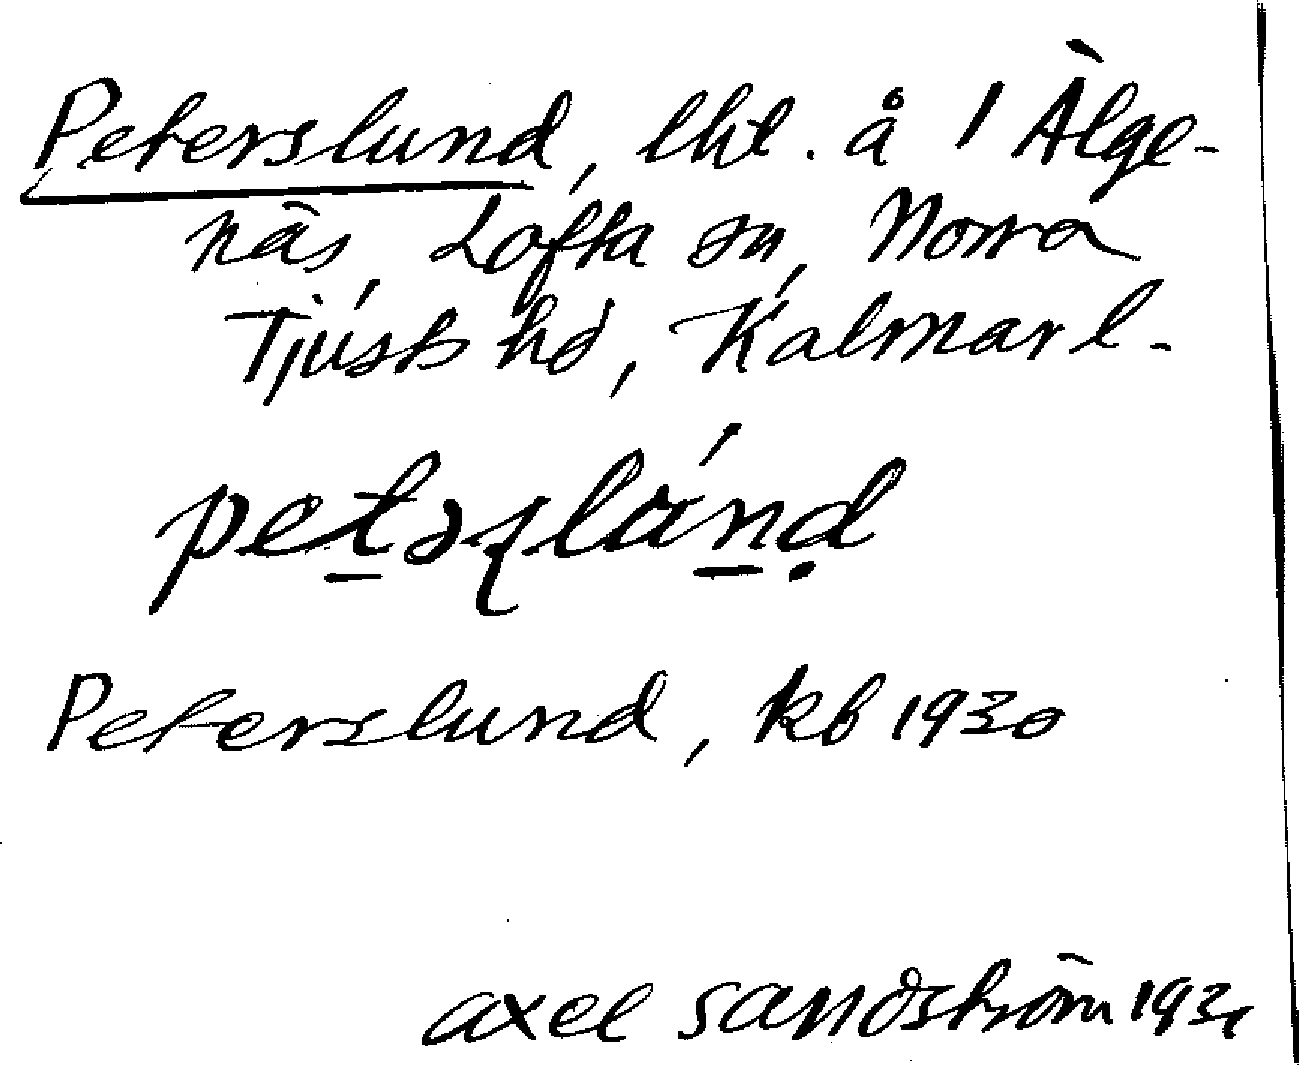 Peterslund, lht. å 1 Älge-
näs, Lofta sn, Norra
Tjusts hd, Kalmar l.
petəʂlúnd
Peterslund, kb 1930
axel sandström 1931